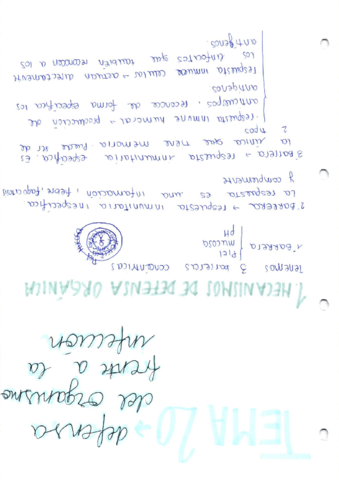 TEMA 20 → defensa
del organismo
frente a la
infección
1. MECANISMOS DE DEFENSA ORGÁNICA
Tenemos 3 barreras concéntricas
1ª Barrera
Piel
mucosa
PH
2ª BARRERA → respuesta inmunitaria inespecífica
La respuesta es una inflamación, fiebre, fagocitosis
y complemento
3ª Barrera → respuesta inmunitaria específica. Es
la única que tiene memoria. Puede ser de
2 tipos
- respuesta inmune humoral → producción de
anticuerpos. reconoce de forma específica los
antígenos
respuesta inmune celular → actúan directamente
los linfocitos que también reconocen a los
antígenos.